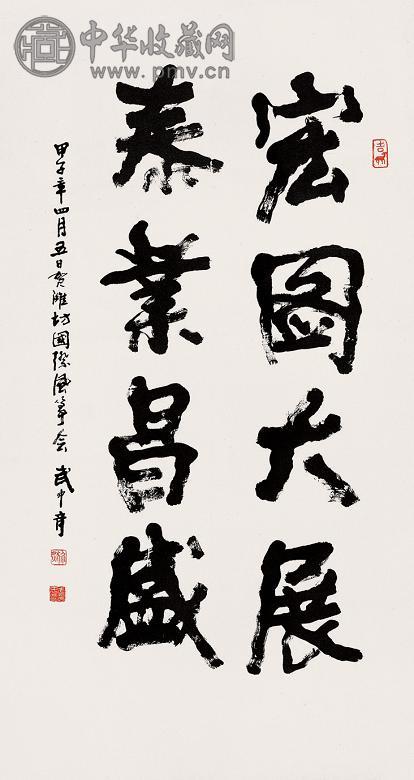 中华收藏网
www.pmv.cn
宏图大展
泰業昌盛
甲子年四月五日贺潍坊國际风筝会 武中奇